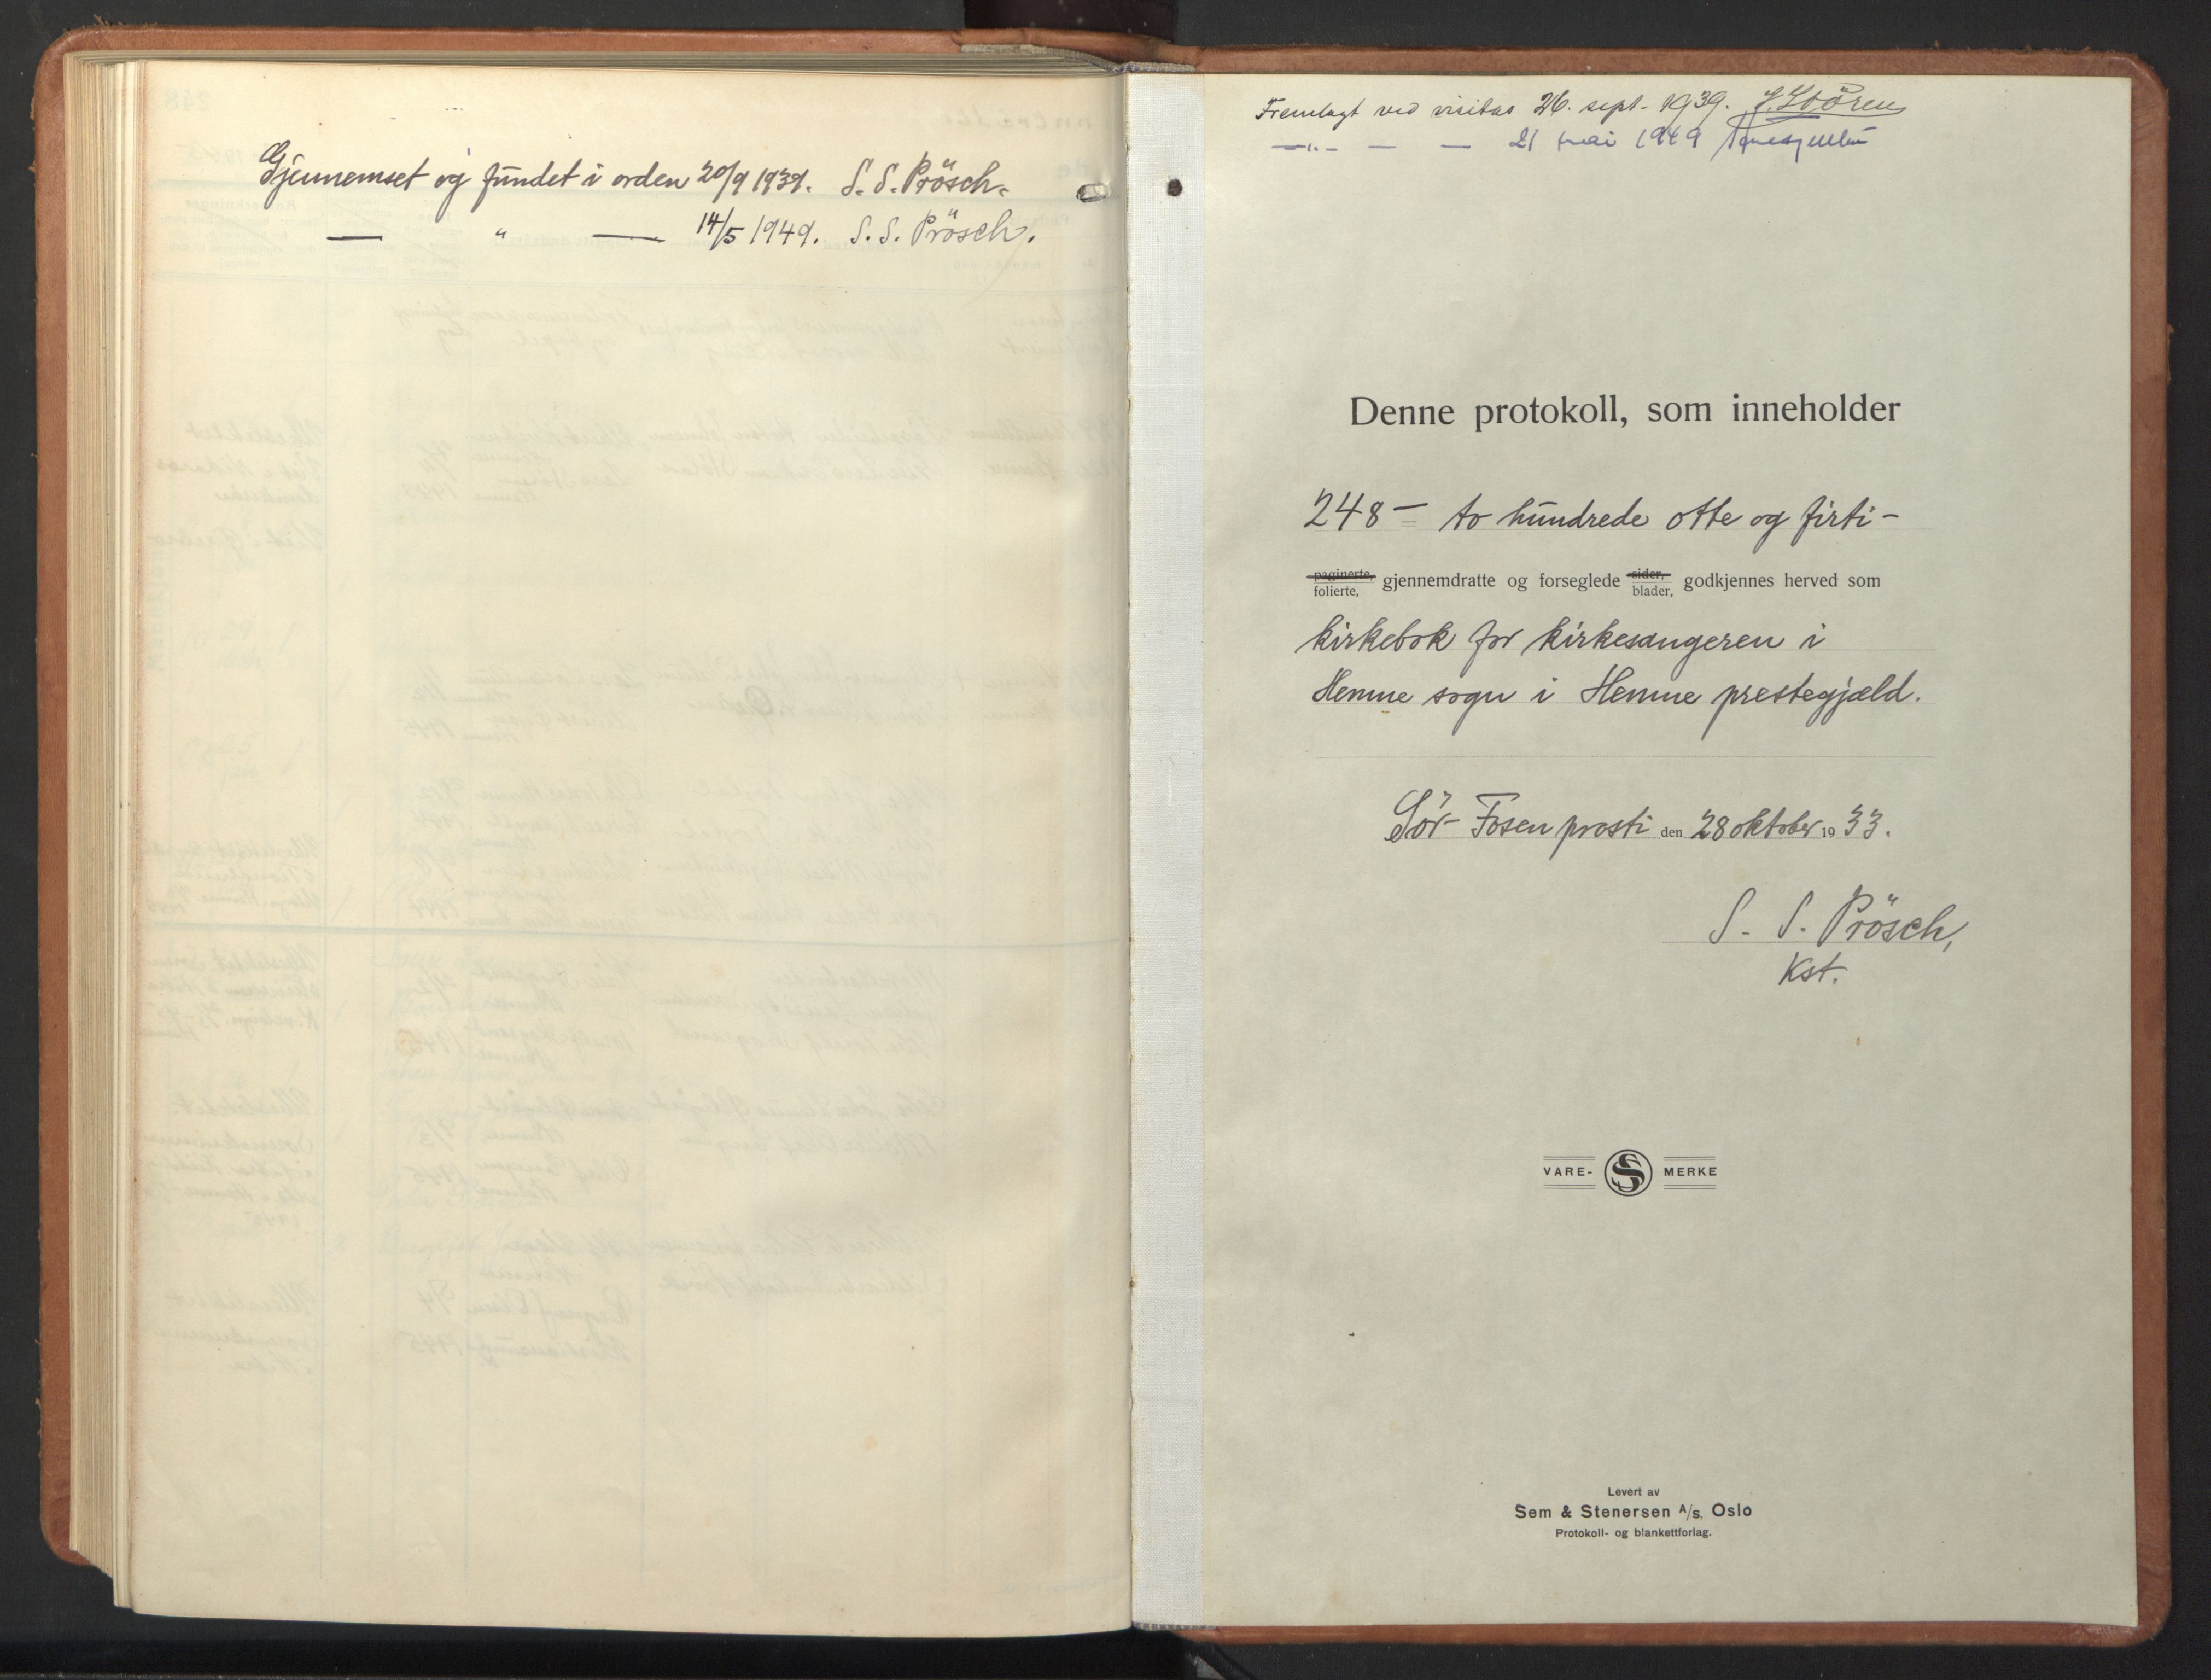 Gjennemset og fundet i orden 20/9 1939. S. S. Prösch.
— " — 14/5 1949. S. S. Prösch.
Fremlagt ved visitas 26. sept. 1939. J. Støren
—"— — — 21 mai 1949
Denne protokoll, som inneholder
248 — to hundrede otte og firti —
paginerte, folierte, gjennemdratte og forseglede sider, blader, godkjennes herved som
kirkebok for kirkesangeren i
Hemne sogn i Hemne prestegjæld.
Sör-Fosen prosti den 28 oktober 1933.
S. S. Prösch,
Kst.
VARE- S MERKE
Levert av
Sem & Stenersen A/s, Oslo
Protokoll- og blankettforlag.